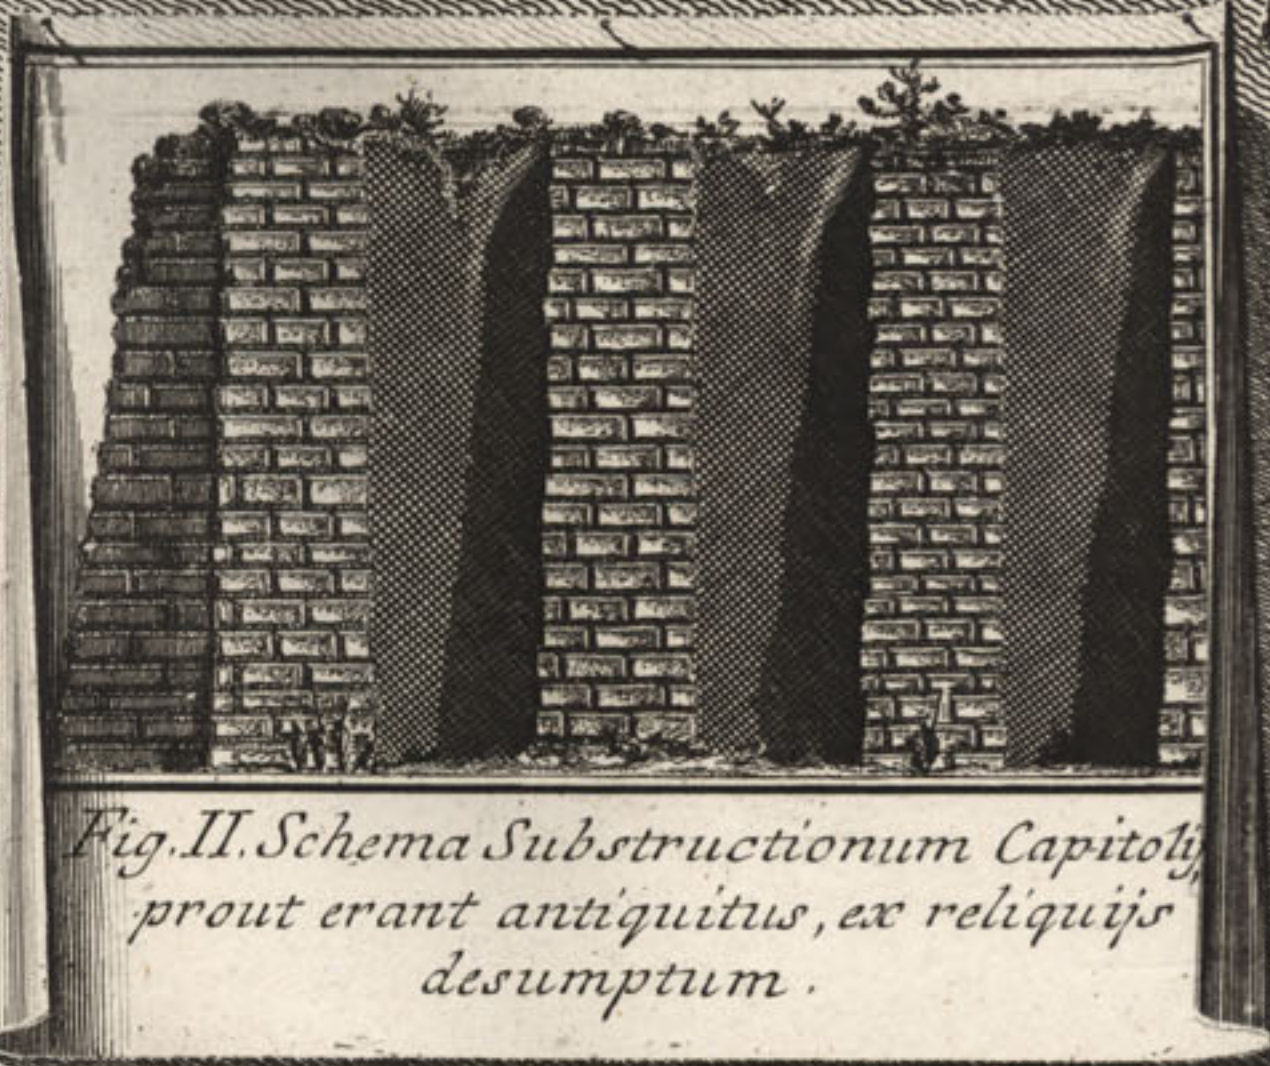 Fig. II. Schema Substructionum Capitolij,
prout erant antiquitus, ex reliquijs
desumptum.